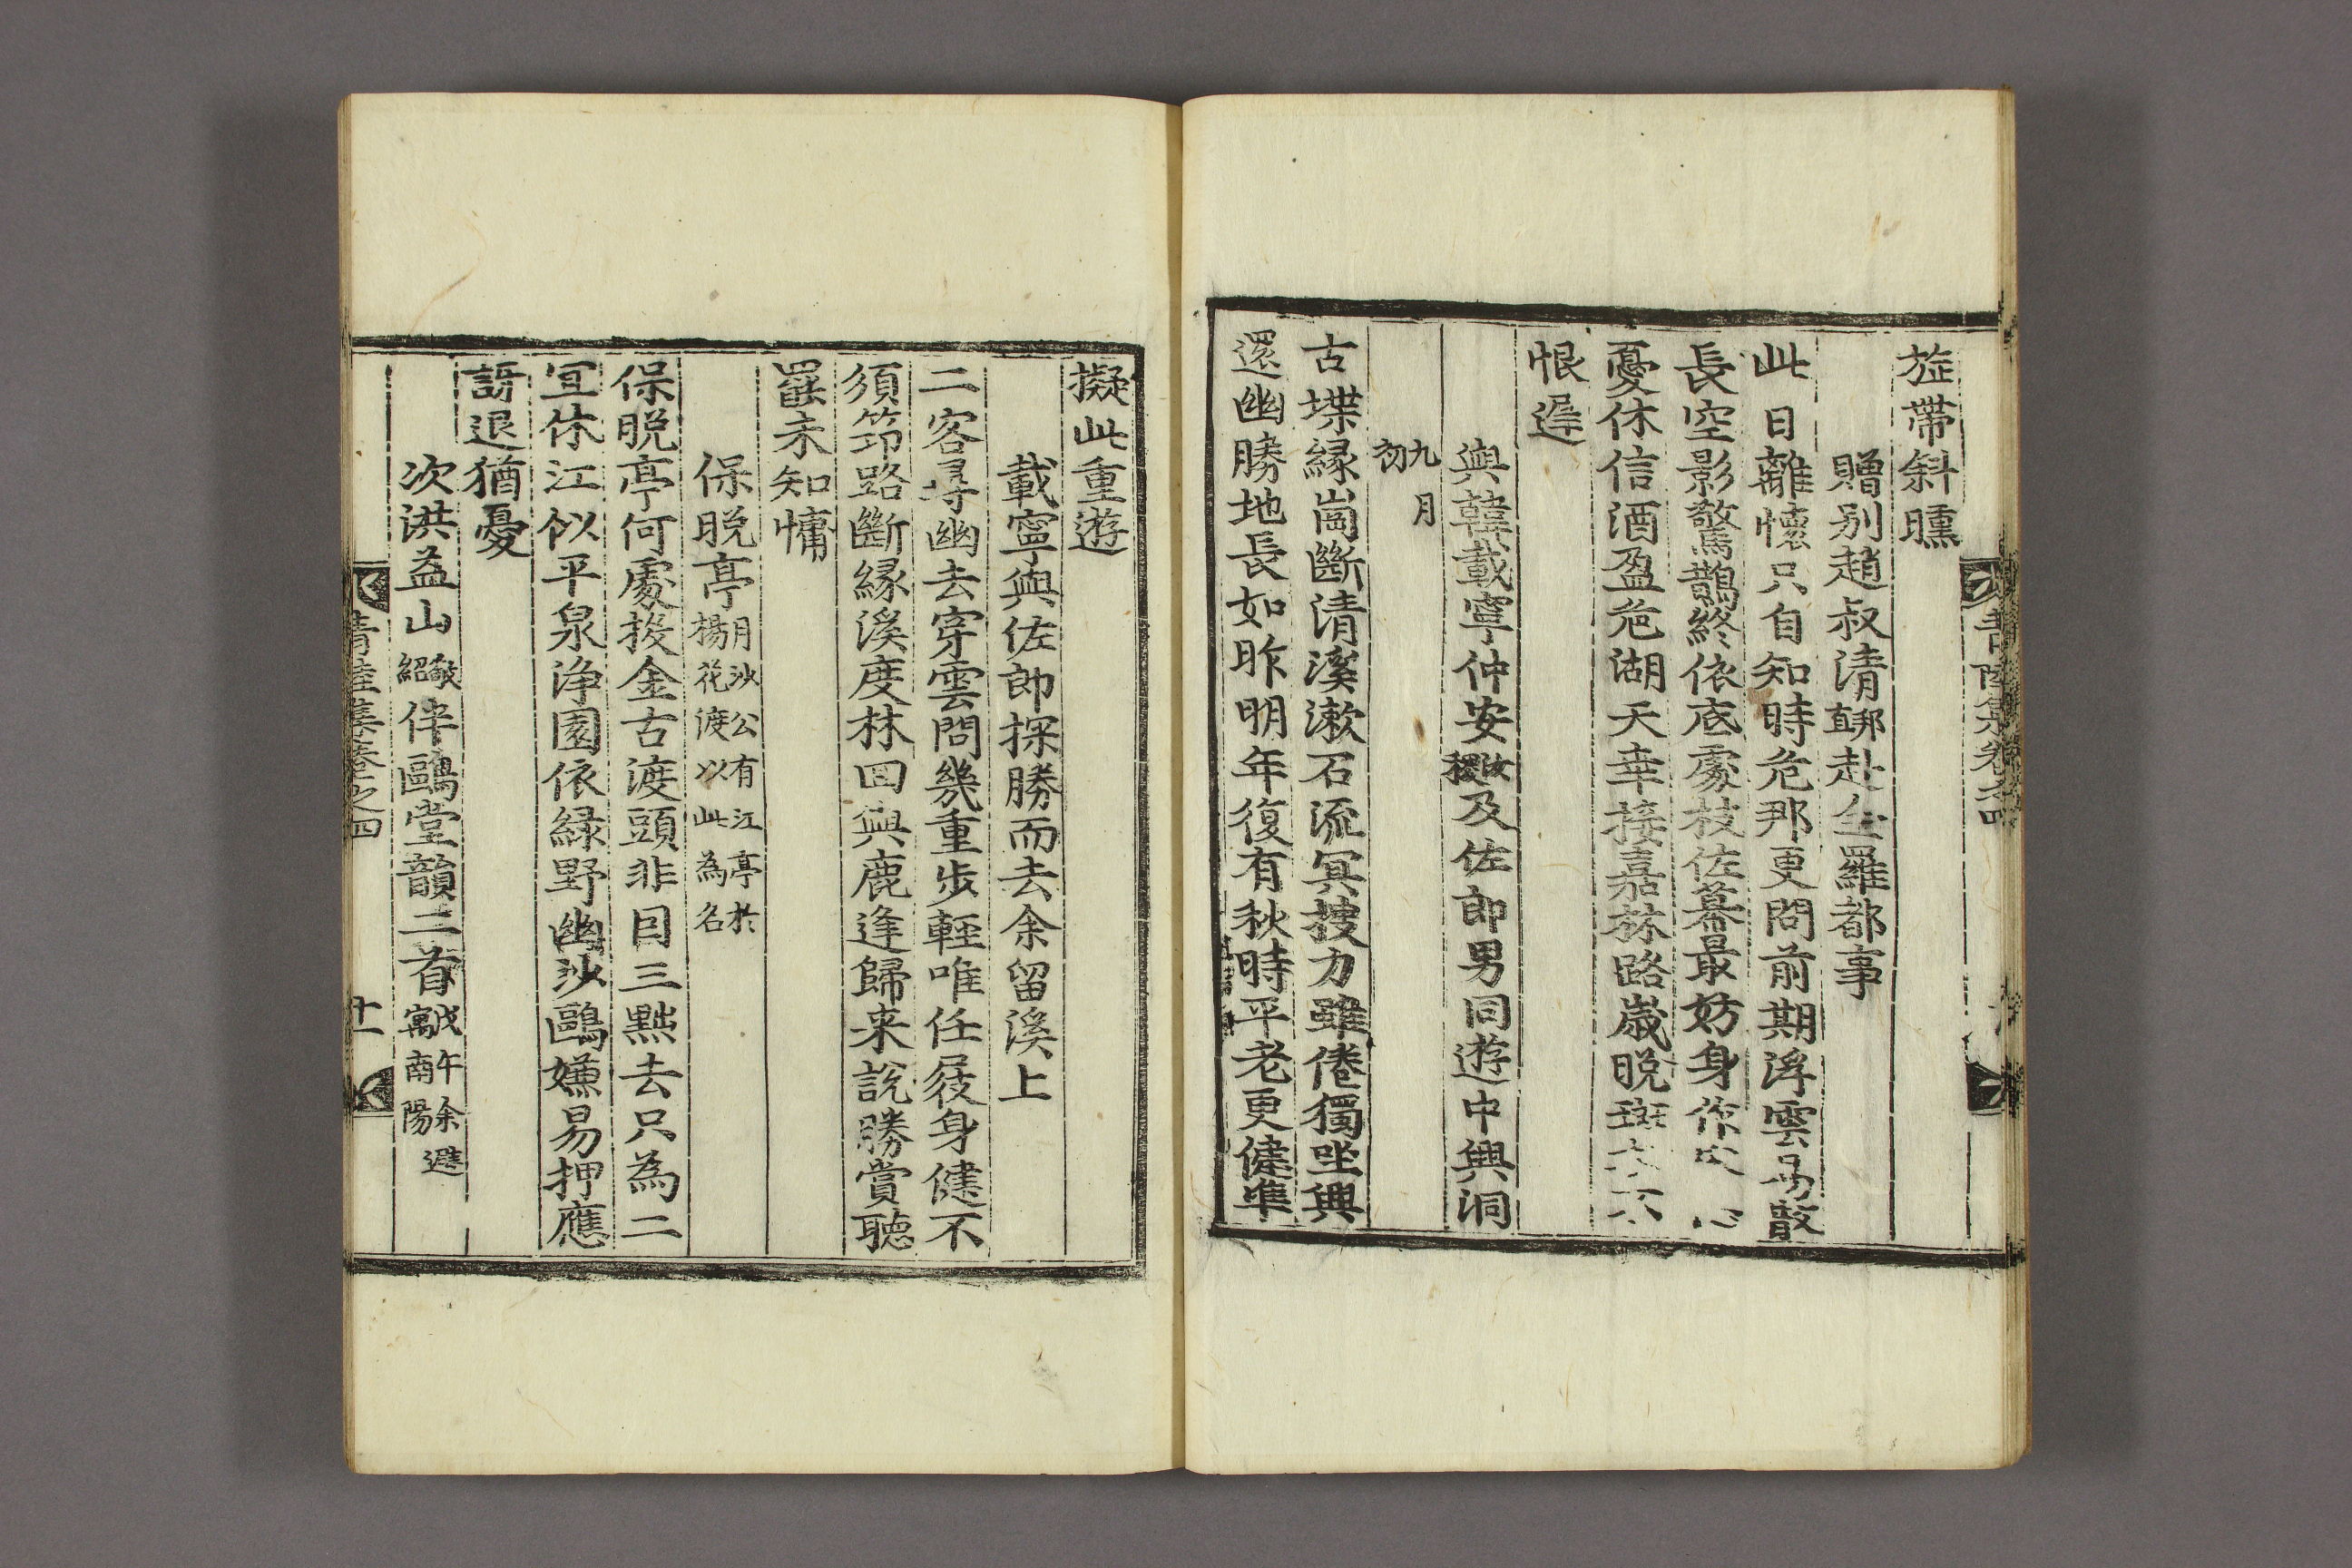 旌帶斜曛
贈别趙叔清䎖赴全羅都事
此日離懷只自知時危那更問前期浮雲易散
長空影驚鵲終依底處枝佐幕最妨身作
憂休信酒盈巵湖天幸接嘉林路歲晚斑
恨遲
與韓載寧仲安汝稷及佐郎男同遊中興洞
九月
初
古堞緣崗斷清溪漱石流冥搜力雖倦獨坐興
還幽勝地長如昨明年復有秋時平老更健準
擬此重遊
載寧與佐郎探勝而去余留溪上
二客尋幽去穿雲問幾重步輕唯任屐身健不
須筇路斷緣溪度林回與鹿逢歸来說勝賞聽
罷未知慵
保脱亭月沙公有江亭於
揚花渡以此為名
保脱亭何處投金古渡頭非目三點去只為二
宜休江似平泉浄園依緑野幽沙鷗嫌易押應
訝退猶憂
次洪益山敬紹伴鷗堂韻二首戊午余避
寓南陽
青陸集卷之四
十一